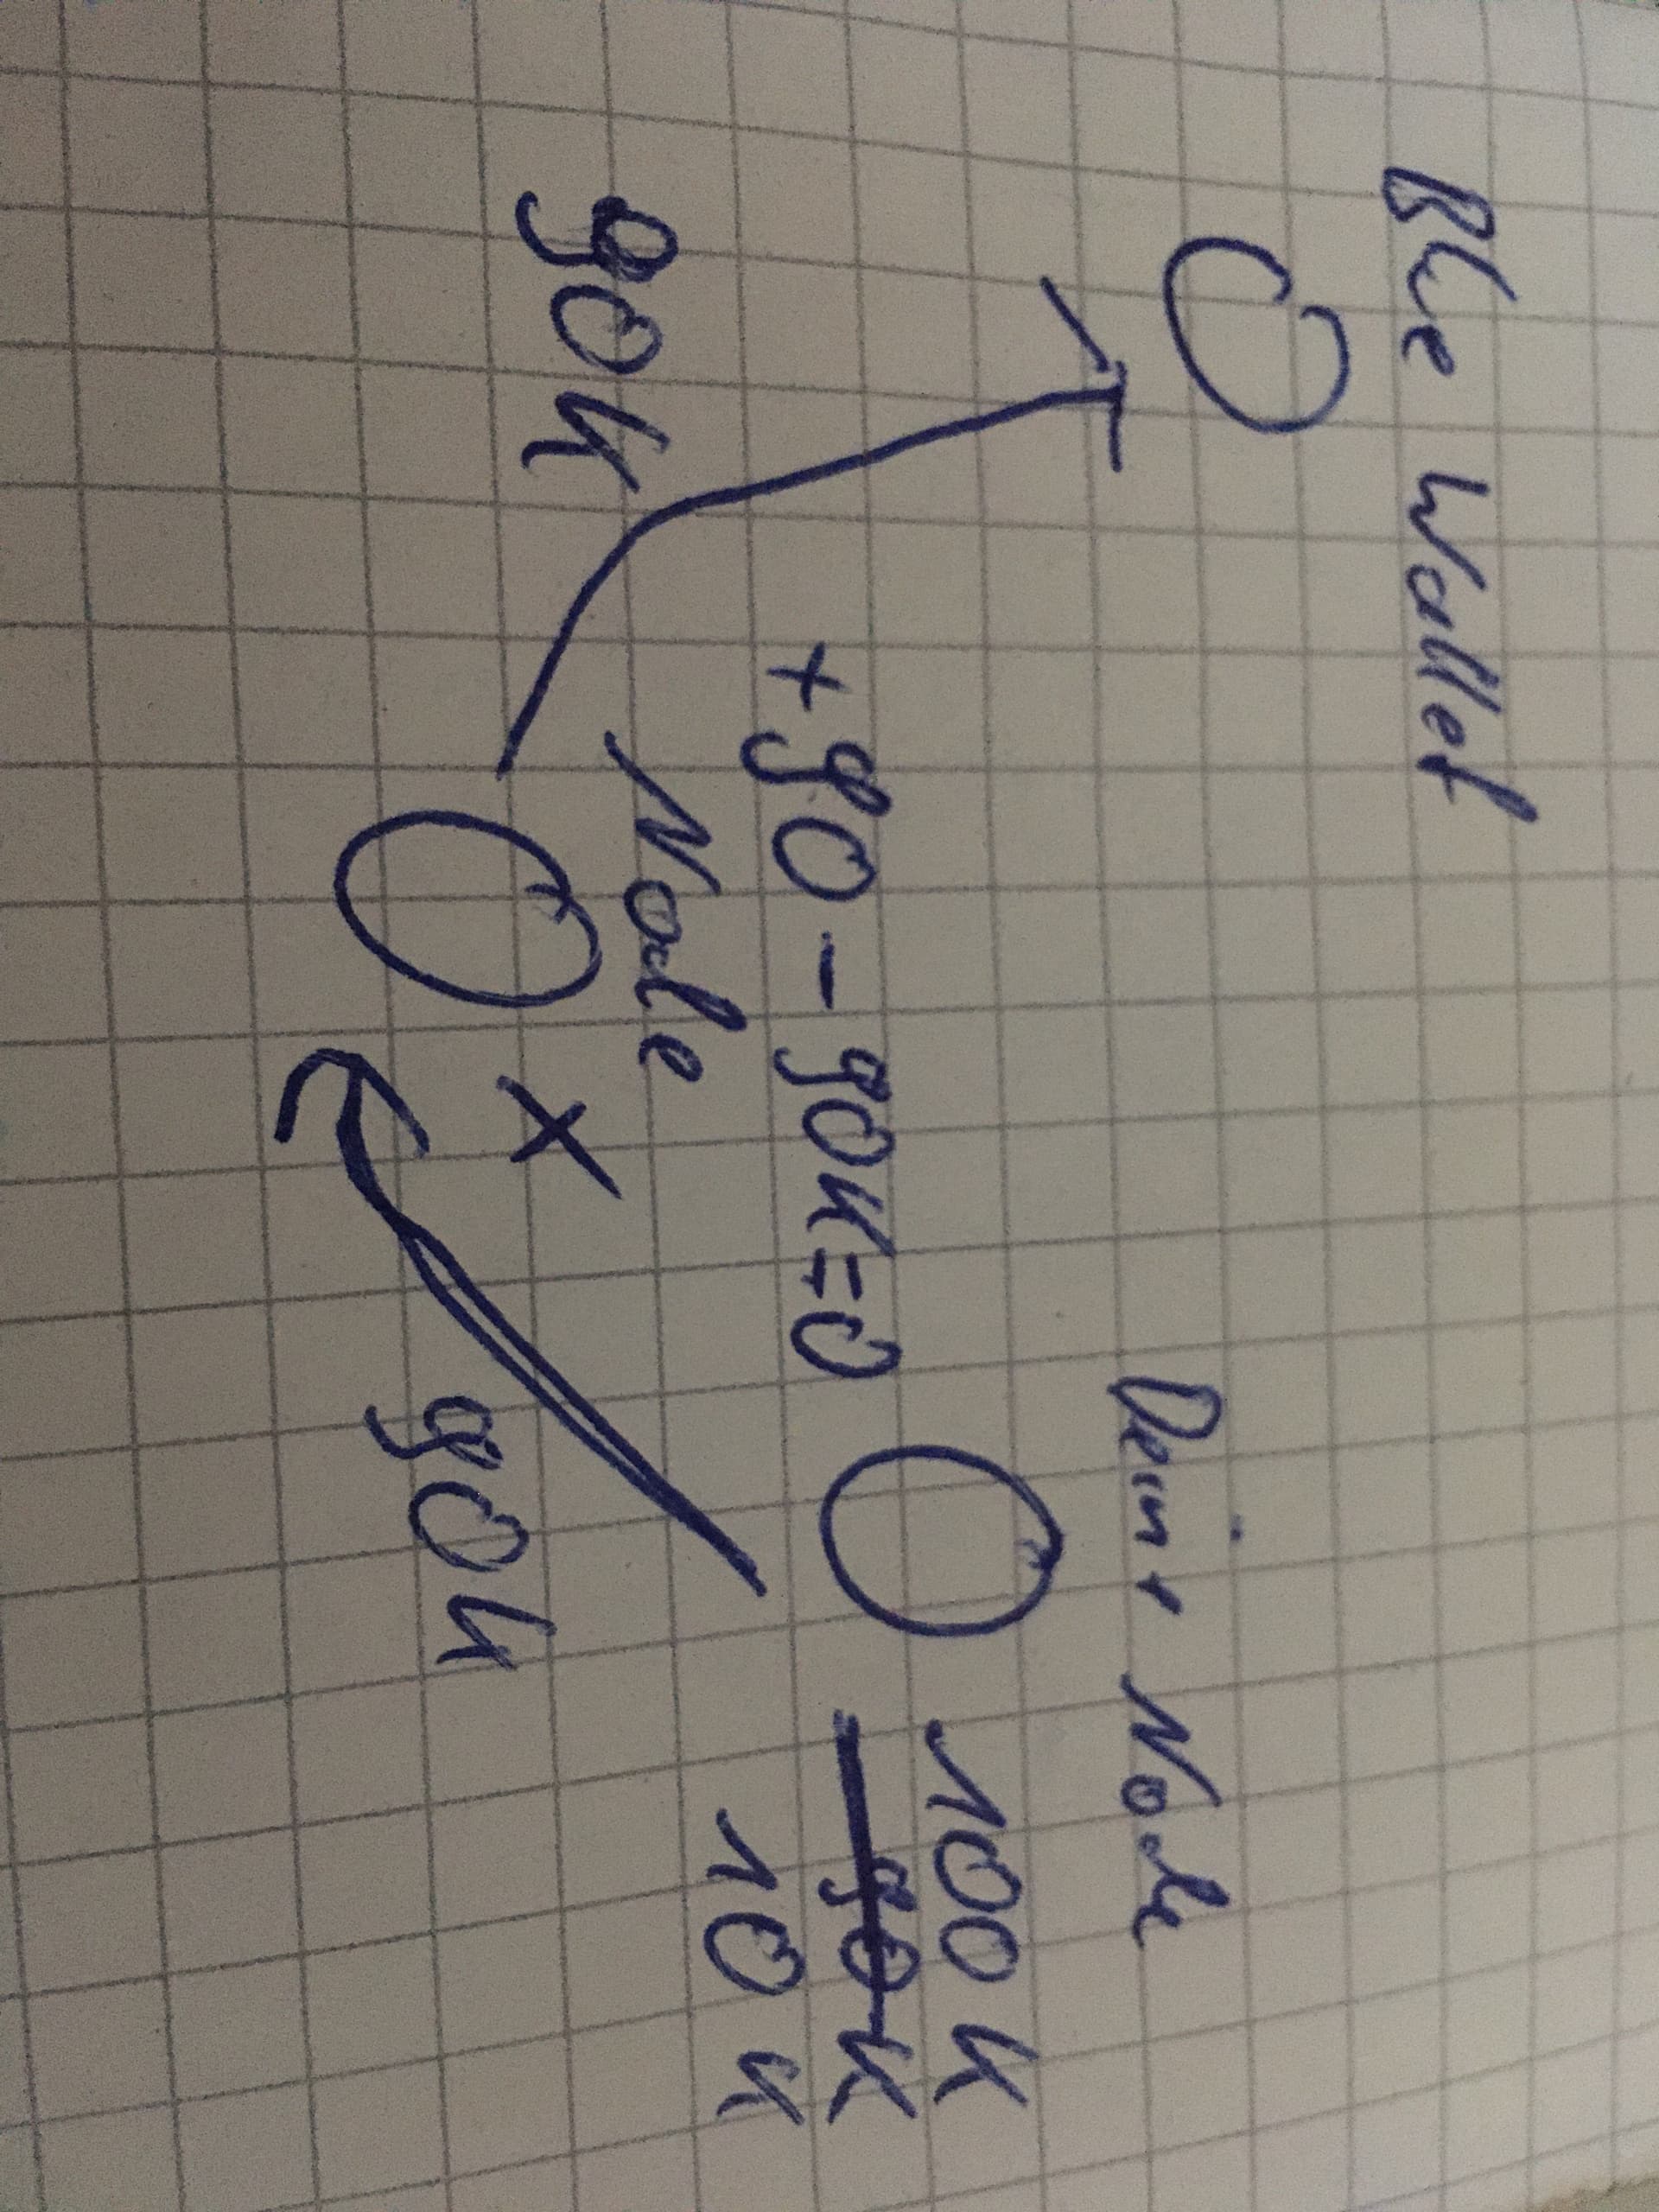 Blue Wallet
Deine Node
100 k
90 k
10 k
+90 - 90k=0
Node X
90k
90k